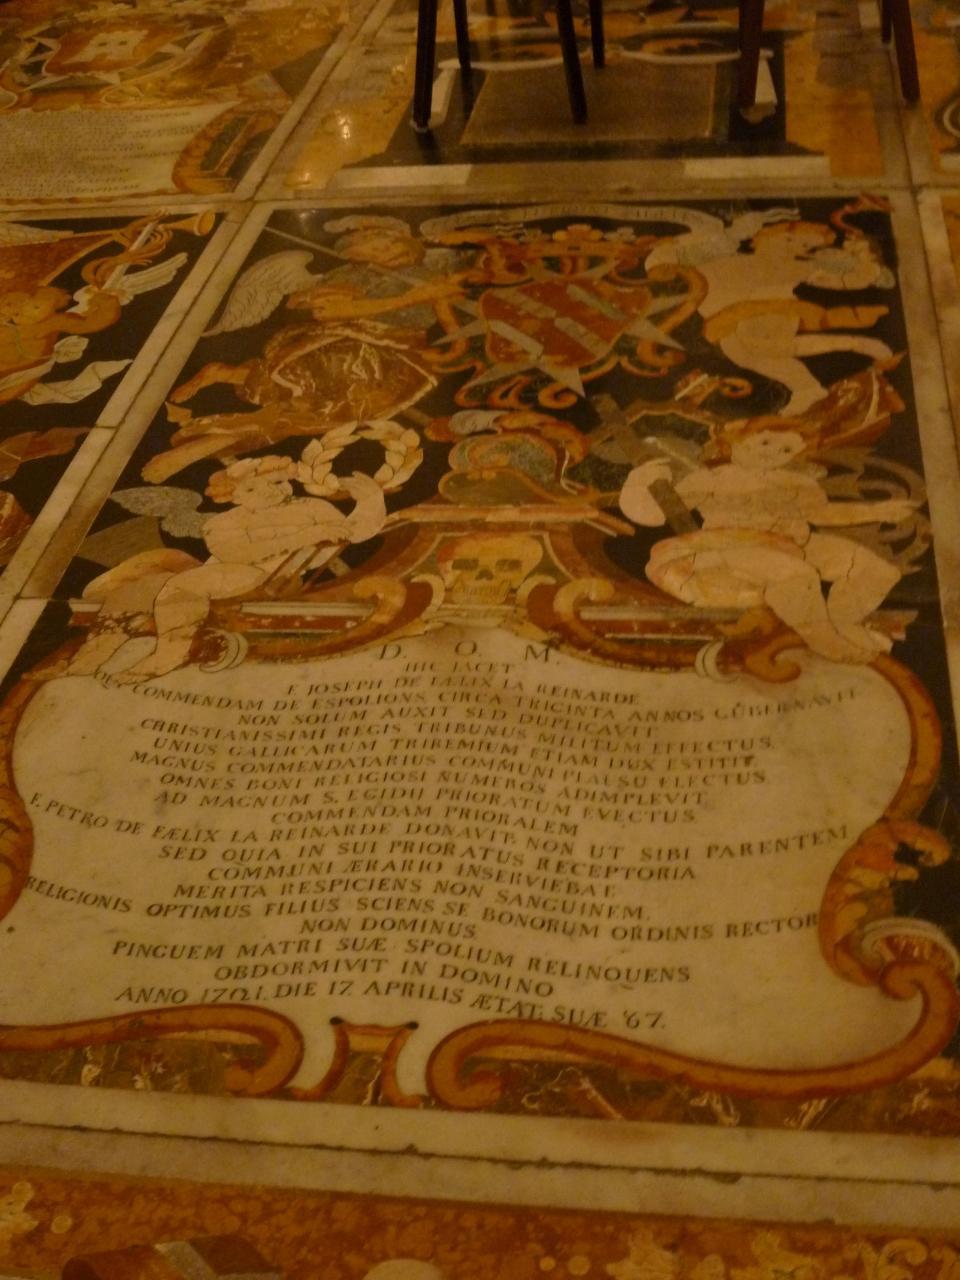 D. O. M.
HIC JACET
F. JOSEPH DE FÆLIX LA REINARDE
QUI COMMENDAM DE ESPOLIONS CIRCA TRIGINTA ANNOS GUBERNAVIT
NON SOLUM AUXIT SED DUPLICAVIT
CHRISTIANISSIMI REGIS TRIBUNUS MILITUM EFFECTUS,
UNIUS GALLICARUM TRIREMIUM ETIAM DUX ESTITIT
MAGNUS COMMENDATARIUS COMMUNI PLAUSU ELECTUS
OMNES BONI RELIGIOSI NUMEROS ADIMPLEVIT
AD MAGNUM S. EGIDIJ PRIORATUM EVECTUS
COMMENDAM PRIORALEM
F. PETRO DE FÆLIX LA REINARDE DONAVIT. NON UT SIBI PARENTEM
SED QUIA IN SUI PRIORATUS RECEPTORIA
COMMUNI ÆRARIO INSERVIEBAT.
MERITA RESPICIENS NON SANGUINEM.
RELIGIONIS OPTIMUS FILIUS SCIENS SE BONORUM ORDINIS RECTOR
NON DOMINUS
PINGUEM MATRI SUÆ SPOLIUM RELINQUENS
OBDORMIVIT IN DOMINO
ANNO 1721. DIE 17 APRILIS ÆTAT: SUÆ 67.